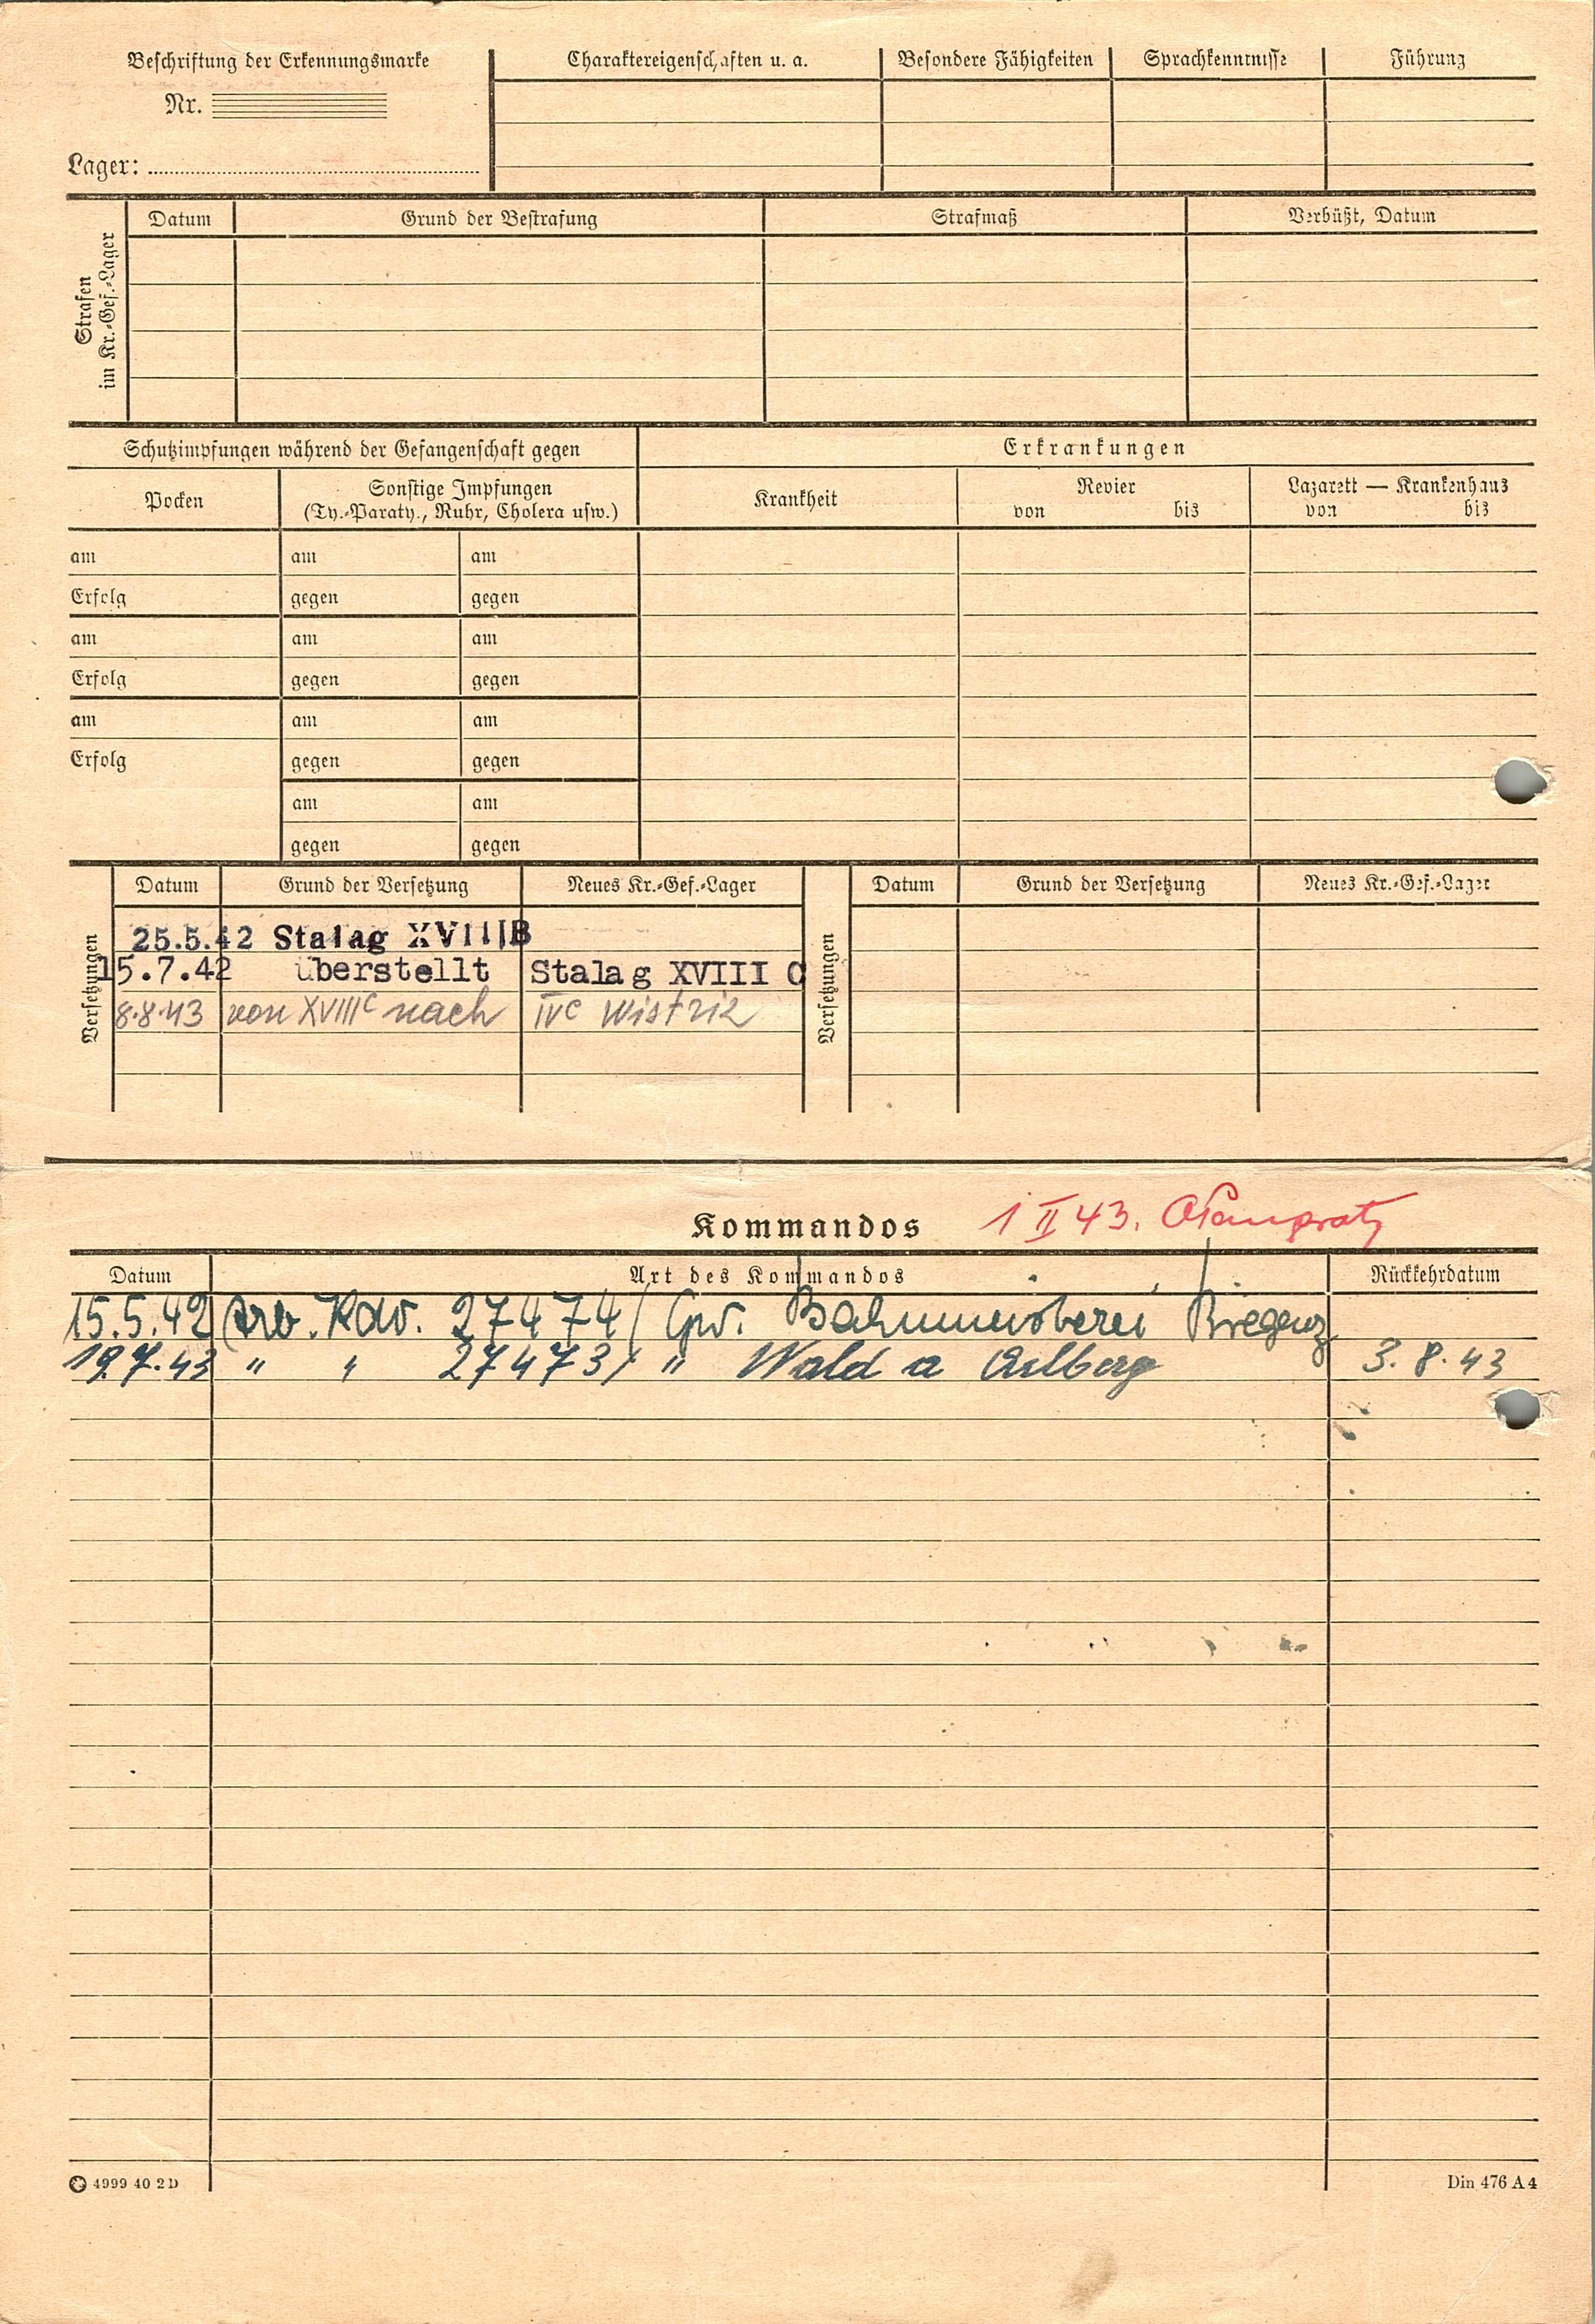 Beschriftung der Erkennungsmarke
Nr.
Lager:
Charaktereigenschaften u. a.
Besondere Fähigkeiten
Sprachkenntnisse
Führung
Strafen
im Kr.-Gef.-Lager
Datum
Grund der Bestrafung
Strafmaß
Verbüßt, Datum
Schutzimpfungen während der Gefangenschaft gegen
Erkrankungen
Pocken
Sonstige Impfungen
(Ty.-Paraty., Ruhr, Cholera usw.)
Krankheit
Revier
von bis
Lazarett — Krankenhaus
von bis
am am am
Erfolg gegen gegen
am am am
Erfolg gegen gegen
am am am
Erfolg gegen gegen
am am
gegen gegen
Versetzungen
Datum Grund der Versetzung Neues Kr.-Gef.-Lager
25.5.42 Stalag XVIIIB
15.7.42 überstellt Stalag XVIII C
8.8.43 von XVIIIC nach IVC Wistriz
Versetzungen
Datum Grund der Versetzung Neues Kr.-Gef.-Lager
Kommandos 1 II 43.
Datum Art des Kommandos Rückkehrdatum
15.5.42 Arb. Kdo. 27474/ Gw. Bregenz
19.7.43 " " 27473/ " Wald a Arlberg 3.8.43
4999 40 2D
Din 476 A4